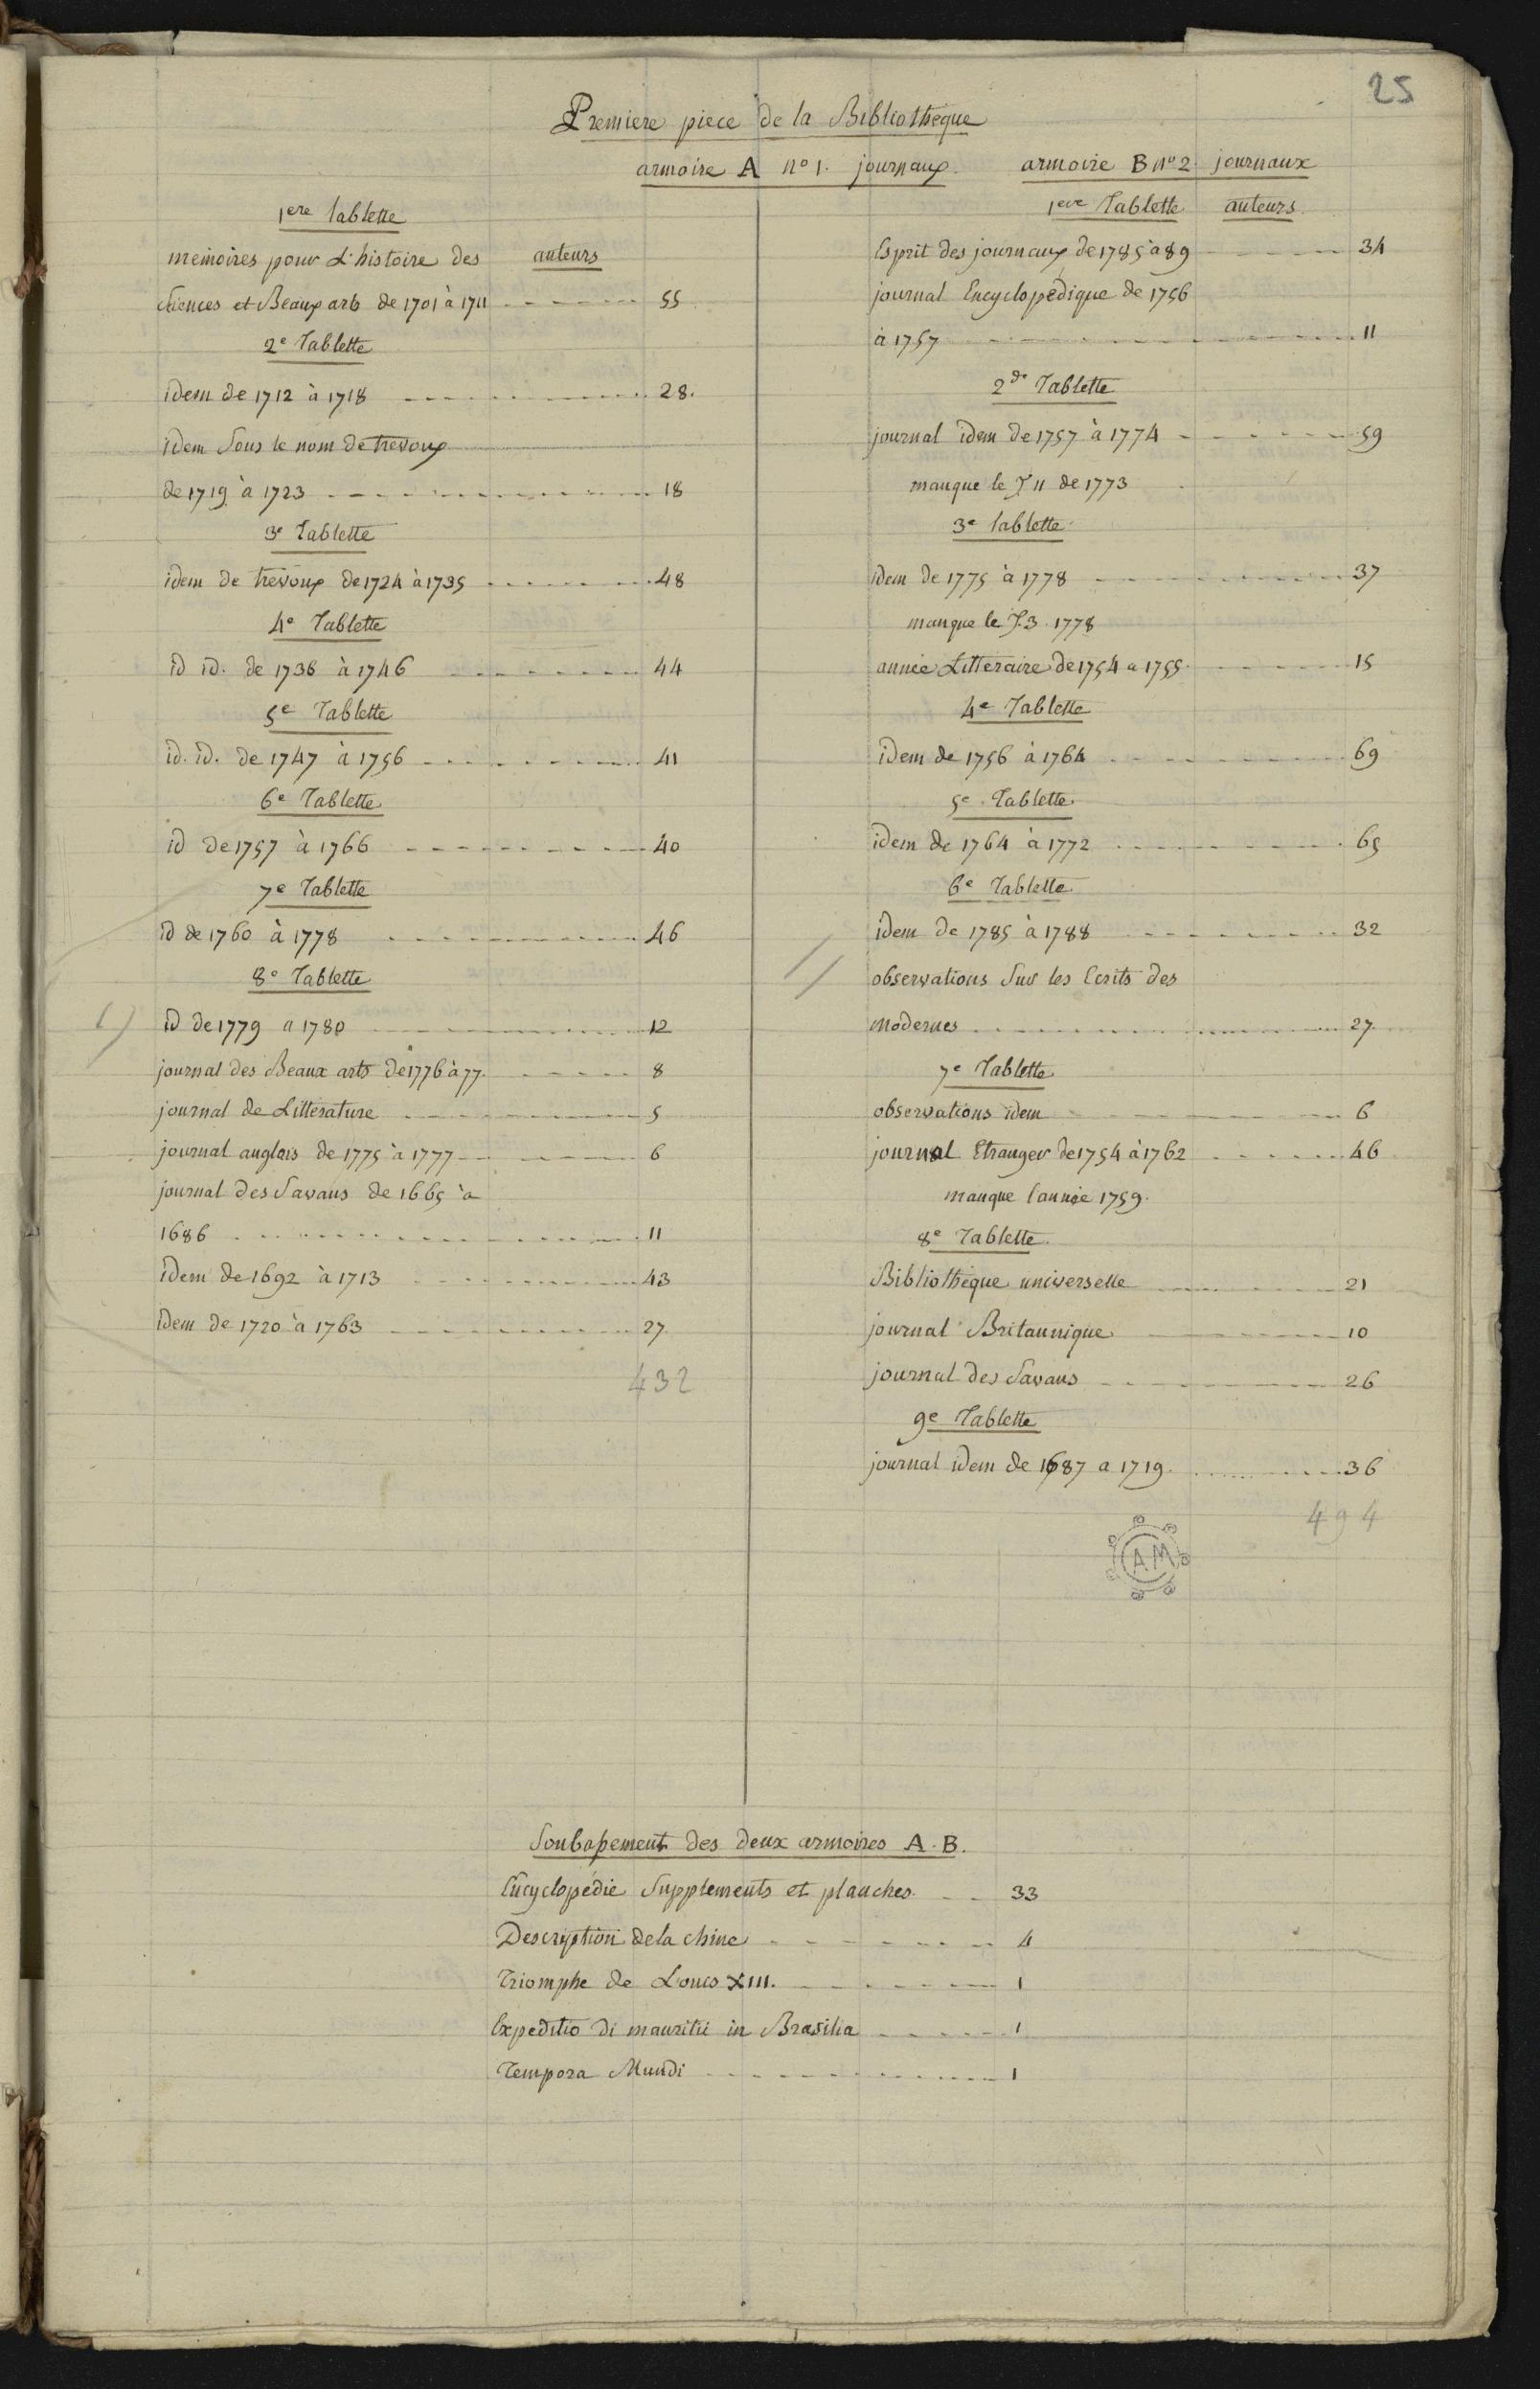 25
Premiere piece de la Bibliotheque
armoire A nº 1. journaux.
1ere Tablette
memoires pour L'histoire des auteurs
sciences et Beaux arts de 1701 à 1711 55
2e Tablette
idem de 1712 à 1718 28.
idem sous le nom de trevoux
de 1719 à 1723 18
3e Tablette
idem de trevoux de 1724 à 1735 48
4e Tablette
id id. de 1736 à 1746 44
5e Tablette
id. id. de 1747 à 1756 41
6e Tablette
id de 1757 à 1766 40
7e Tablette
id de 1760 à 1778 46
8e Tablette
id de 1779 a 1780 12
journal des Beaux arts de 1776 à 77. 8
journal de Litterature 5
journal anglais de 1775 à 1777 6
journal des Savans de 1665 à
1686 11
idem de 1692 à 1713 43
idem de 1720 à 1763 27.
432
armoire B nº 2. journaux
1ere Tablette auteurs
Esprit des journaux de 1785 à 89 34
journal Encyclopedique de 1756
à 1757 11
2de Tablette
journal idem de 1757 à 1774 59
manque le T 11 de 1773
3e Tablette
idem de 1775 à 1778 37
manque le T.3. 1778
année Litteraire de 1754 a 1755. 15
4e Tablette
idem de 1756 à 1764 69
5e Tablette
idem de 1764 à 1772 65
6e Tablette
idem de 1785 à 1788 32
observations Sur les Ecrits des
modernes 27.
7e Tablette
observations idem 6
journal Etranger de 1754 à 1762 46
manque l'année 1759.
8e Tablette.
Bibliothéque universelle 21
journal Britannique 10
journal des Savans 26
9e Tablette
journal idem de 1687 a 1719. 36
494
AM
Soubassement des deux armoires A. B.
Encyclopédie Supplements et planches. 33
Description de la chine 4
Triomphe de Louis XIII. 1
Expeditio di mauritii in Brasilia 1
Tempora Mundi 1